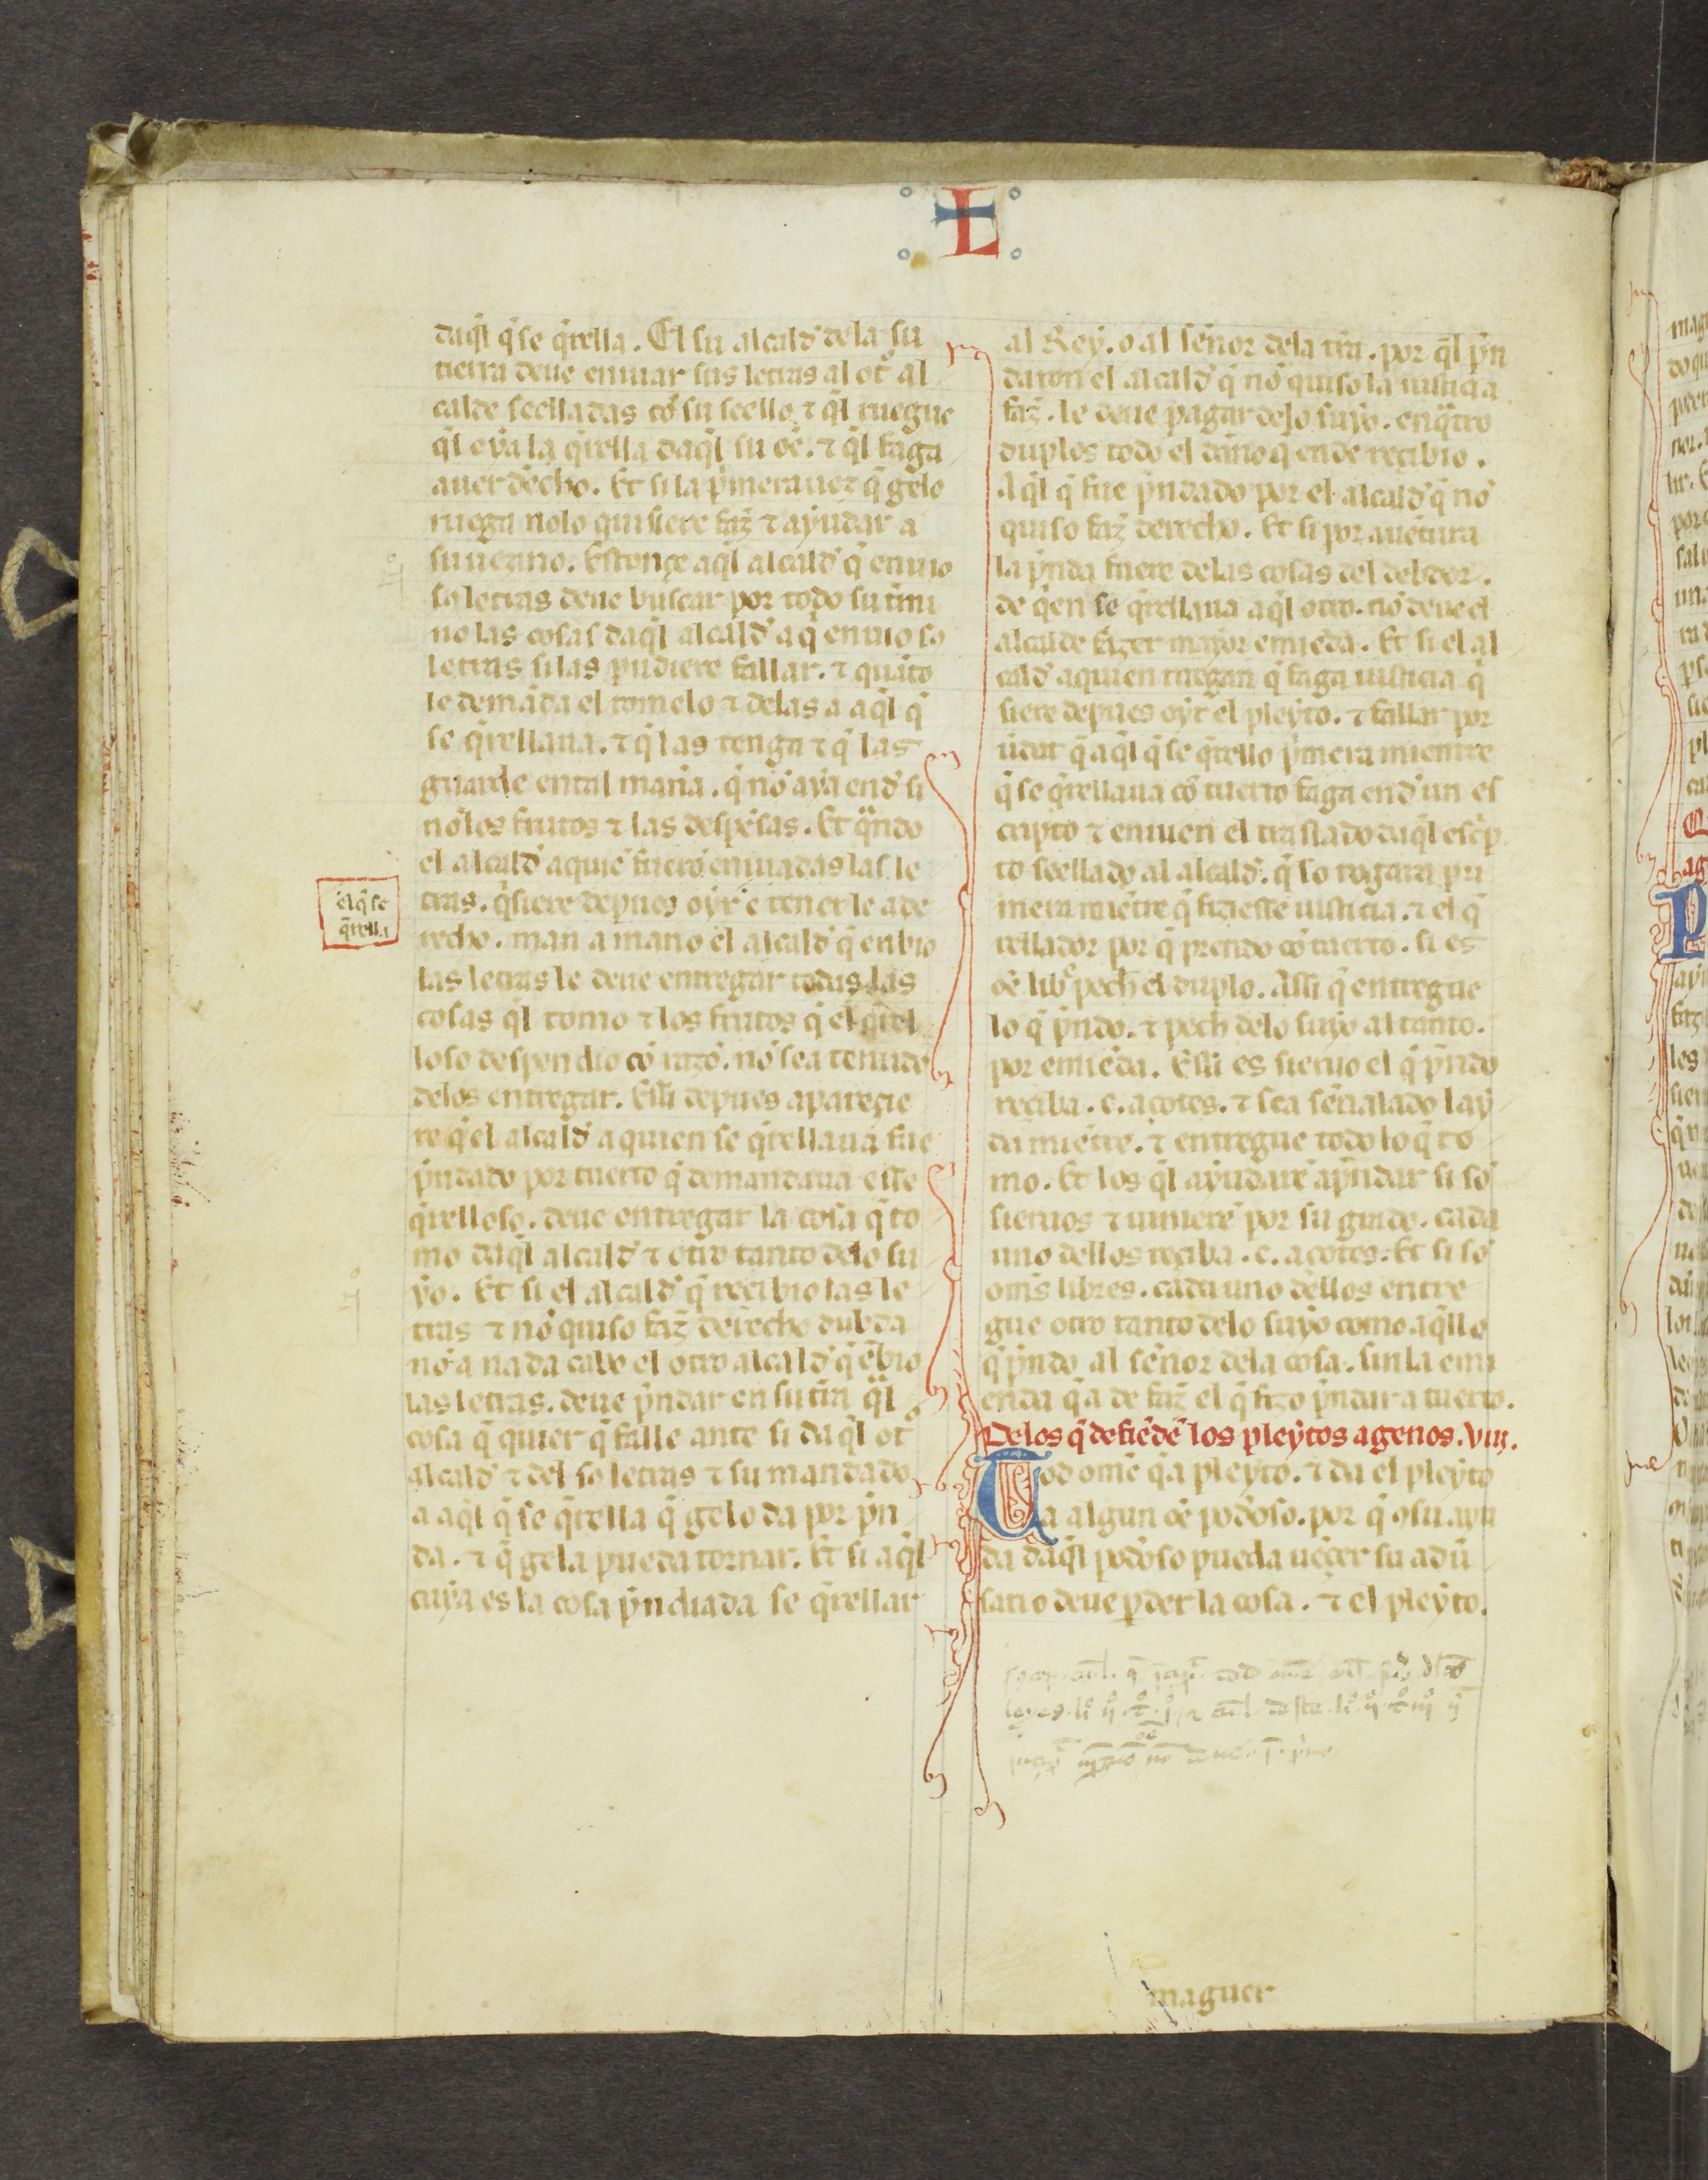 L
daq̄l q̄ se q̄rella. El su alcald̓ de la su
tierra deue enuiar sus letras al ot̊ al
calde seelladas cō su seello. ⁊ q̄l ruegue
q̄l oya la q̄rella daq̄l su oē. ⁊ q̄l faga
auer d̓echo. Et si la p̓mera uez q̄ gelo
ruega nolo quisiere faz̄ ⁊ ayudar a
su uezino. Estonçe aq̄l alcald̓ q̄ enuio
so letras deue buscar por todo su t̄mi
no las cosas daq̄l alcald̓ a q̄ enuio so
letras si las pudiere fallar. ⁊ quāto
le demāda el tomelo ⁊ delas a aq̄l q̄
se q̄rellaua. ⁊ q̄ las tenga ⁊ q̄ las
guarde en tal man̄a. q̄ nō aya end̓ si
nō los frutos ⁊ las despēsas. Et q̄ndo
el alcald̓ a quiē fuerō enuiadas las le
tras. q̄siere depues oyr e tener le a de
recho. man a mano el alcald̓ q̄ enbio
las letras le deue entregar todas las
cosas q̄l tomo ⁊ los frutos q̄ el q̄rel
loso despendio cō razō. nō sea tenudo
delos entregar. E ssi depues apareçie
re q̄ el alcald̓ a quien se q̄rellaua fue
p̄ndado por tuerto q̄ demandaua este
q̄relloso. deue entregar la cosa q̄ to
mo daq̄l alcald̓ ⁊ otro tanto delo su
yo. Et si el alcald̓ q̄ recibio las le
tras ⁊ nō quiso faz̄ derecho dubda
nō a nada cabo el otro alcald̓ q̄ ēbio
las letras. deue p̄ndar en su t̄ra q̄l
cosa q̄ quier q̄ falle ante si daq̄l ot̊
alcald̓ ⁊ del so letras ⁊ su mandado
a aq̄l q̄ se q̄rella q̄ gelo da por p̄n
da. ⁊ q̄ gela pueda tornar. Et si aq̄l
cuya es la cosa p̄ndiada se q̄rellar
el q̄ se
q̄rella
al Rey. o al señor dela t̄ra. por q̄l p̄n
daron el alcald̓ q̄ nō quiso la iusticia
faz̄. le deue pagar delo suyo. en q̄tro
duplos todo el dāno q̄ ende recibio.
Aq̄l q̄ fue p̄ndado por el alcald̓ q̄ nō
quiso faz̄ derecho. Et si por auētura
la p̄nda fuere delas cosas del debdor.
de q̄en se q̄rellaua aq̄l otro. nō deue el
alcalde fazer mayor emiēda. Et si el al
cald̓ a quien ruegan q̄ faga iusticia q̄
siere depues oyr el pleyto. ⁊ fallar por
ūdat q̄ aq̄l q̄ se q̄rello p̓mera mientre
q̄ se q̄rellaua cō tuerto faga end̓ un es
cripto ⁊ enuien el traslado daq̄l esc̄p
to seellado al alcald̓. q̄ so rogara pri
mera miētre q̄ fiziesse iusticia. ⁊ el q̄
rellador por q̄ prendo cō tuerto. si es
oē lib̊ pech̄ el duplo. Assi q̄ entregue
lo q̄ p̄ndo. ⁊ pech̄ delo suyo al tanto.
por emiēda. E ssi es sieruo el q̄ p̄ndo
reciba .c. açotes. ⁊ sea señalado lay
da miētre. ⁊ entregue todo lo q̄ to
mo. Et los q̄l ayudarē a p̄ndar si sō
sieruos ⁊ uinierē por su grado. cada
uno dellos reciba .c. açotes. Et si sō
om̄s libres. cada uno dellos entre
gue otro tanto delo suyo como aq̄llo
q̄ p̄ndo al señor dela cosa. sin la emi
enda q̄ a de faz̄ el q̄ fizo p̄ndar a tuerto.
Delos q̄ defiēdē los pleytos agenos. viij.
Tod omē q̄ a pleyto. ⁊ da el pleyto
a algun oē pod̓oso. por q̄ ꝯ su ayu
da daq̄l pod̓oso pueda uēçer su adū
sario deue ꝑder la cosa. ⁊ el pleyto.
maguer